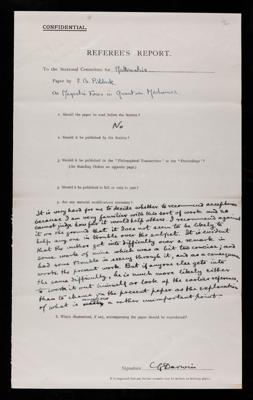 CONFIDENTIAL.
REFEREE'S REPORT.
To the Sectional Committee for Mathematics
Paper by F. B. Pidduck
On Magnetic Forces in Quantum Mechanics.
1. Should the paper be read before the Society?
No
2. Should it be published by the Society?
3. Should it be published in the "Philosophical Transactions" or the "Proceedings"?
(See Standing Orders on opposite page.)
4. Should it be published in full or only in part?
5. Are any material modifications necessary?
It is very hard for me to decide whether to recommend acceptance
because I am very familiar with this sort of work and so
cannot judge how far it would help others. I recommend against
it on the ground that it does not seem to be likely to
help any one in trouble over the subject. It is evident
that the author got into difficulty over a remark in
some work of mine which was a bit too concise, and
had some trouble in seeing through it, and as a consequence
wrote the present work. But if anyone else gets into
the same difficulty, he is much more likely either
to work it out himself or look up the earlier references
than to chance on the present paper as the explanation
of what is a rather unimportant point.
6. Which illustrations, if any, accompanying the paper should be reproduced?
Signature C G Darwin